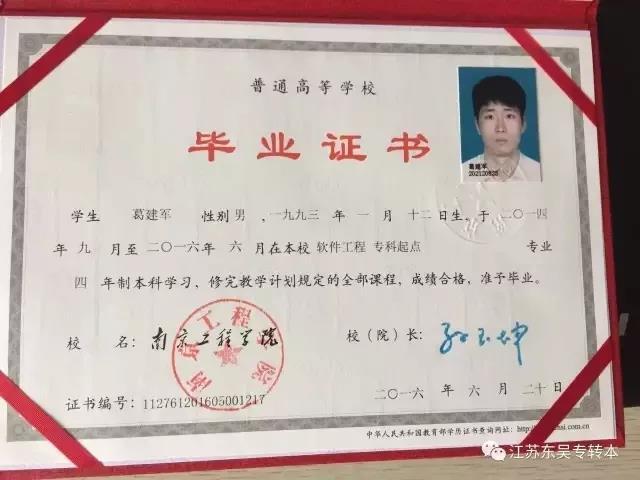 普通高等学校
毕业证书
葛建军
202120825
学生 葛建军 性别 男 ,一九九三 年 一 月 十二 日生,于 二〇一四
年 九 月至 二〇一六 年 六 月在本校 软件工程 专科起点 专业
四 年制本科学习,修完教学计划规定的全部课程,成绩合格,准予毕业。
校 名: 南京工程学院 校(院)长:
南京工程学院
二〇一六 年 六 月 二十 日
证书编号: 112761201605001217
中华人民共和国教育部学历证书查询网址:
江苏东吴专转本